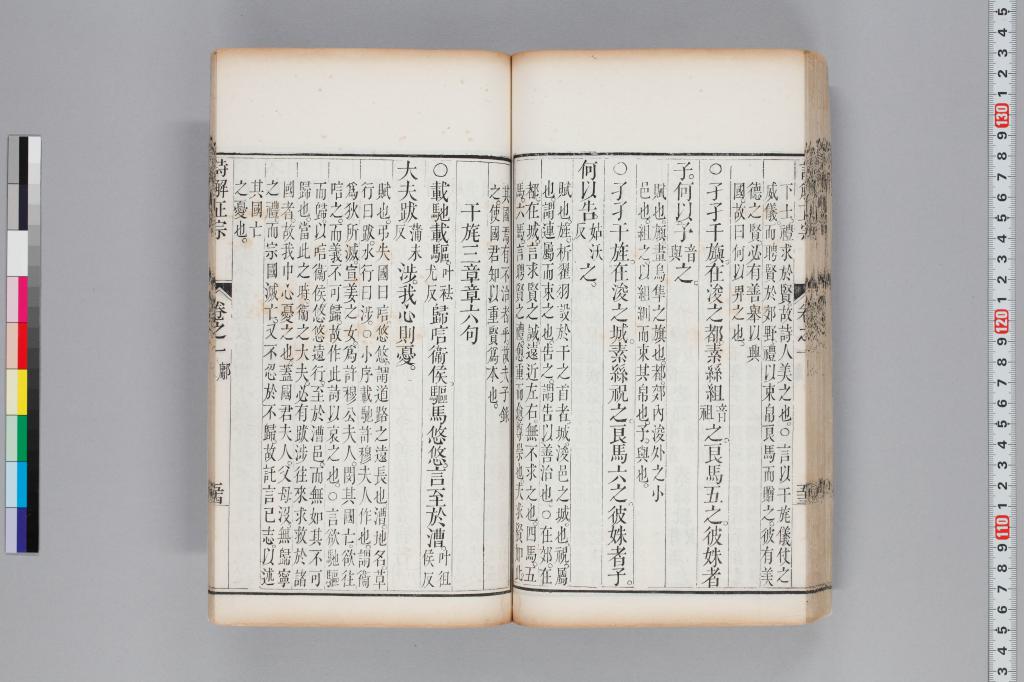 下士禮求於賢故詩人美之也○言以干旄儀仗之
威儀而聘賢於郊野禮以束帛良馬而贈之彼有美
德之賢必有善舉以與
國故曰何以畀之也
○孑孑干旟在浚之都素絲組音祖之良馬五之彼姝者
子何以予音與之
賦也旟畫鳥隼之旟也都郊內浚外之小
邑也組之以組訓而束其帛也予與也
○孑孑干旌在浚之城素絲祝之良馬六之彼姝者子
何以告姑沃反之
賦也旌析翟羽設於干之首者城浚邑之城也祝屬
也謂連屬而束之也告之謂告以善治也○在郊在
都在城言求賢之誠遠近左右無不求之也四馬五
馬六馬言聘賢之禮
之使國君知以重賢為本也
干旄三章章六句
○載馳載驅叶祛尤反歸唁衞侯驅馬悠悠言至於漕叶徂侯反
大夫跋蒲末反涉我心則憂
賦也弔失國曰唁悠悠謂道路之遠長也漕地名草
行曰跋水行曰涉○小序載馳許穆夫人作也謂衞
為狄所滅宣姜之女為許穆公夫人閔其國亡欲往
唁之而義不可歸故作此詩以哀之也○言欲馳驅
而歸以唁衞侯悠悠遠行至於漕邑而無如其不可
歸也當此之時衞之大夫必有跋涉往來求救於諸
國者故我中心憂之也蓋國君夫人父母沒無歸寧
之禮而宗國滅亡又不忍於不歸故託言己志以述
其國亡
之憂也
詩解正宗 卷之一 鄘